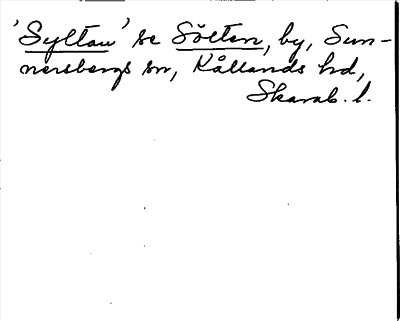 'Syltan' se Sölten, by, Sun-
nersbergs sn, Kållands hd,
Skarab. l.